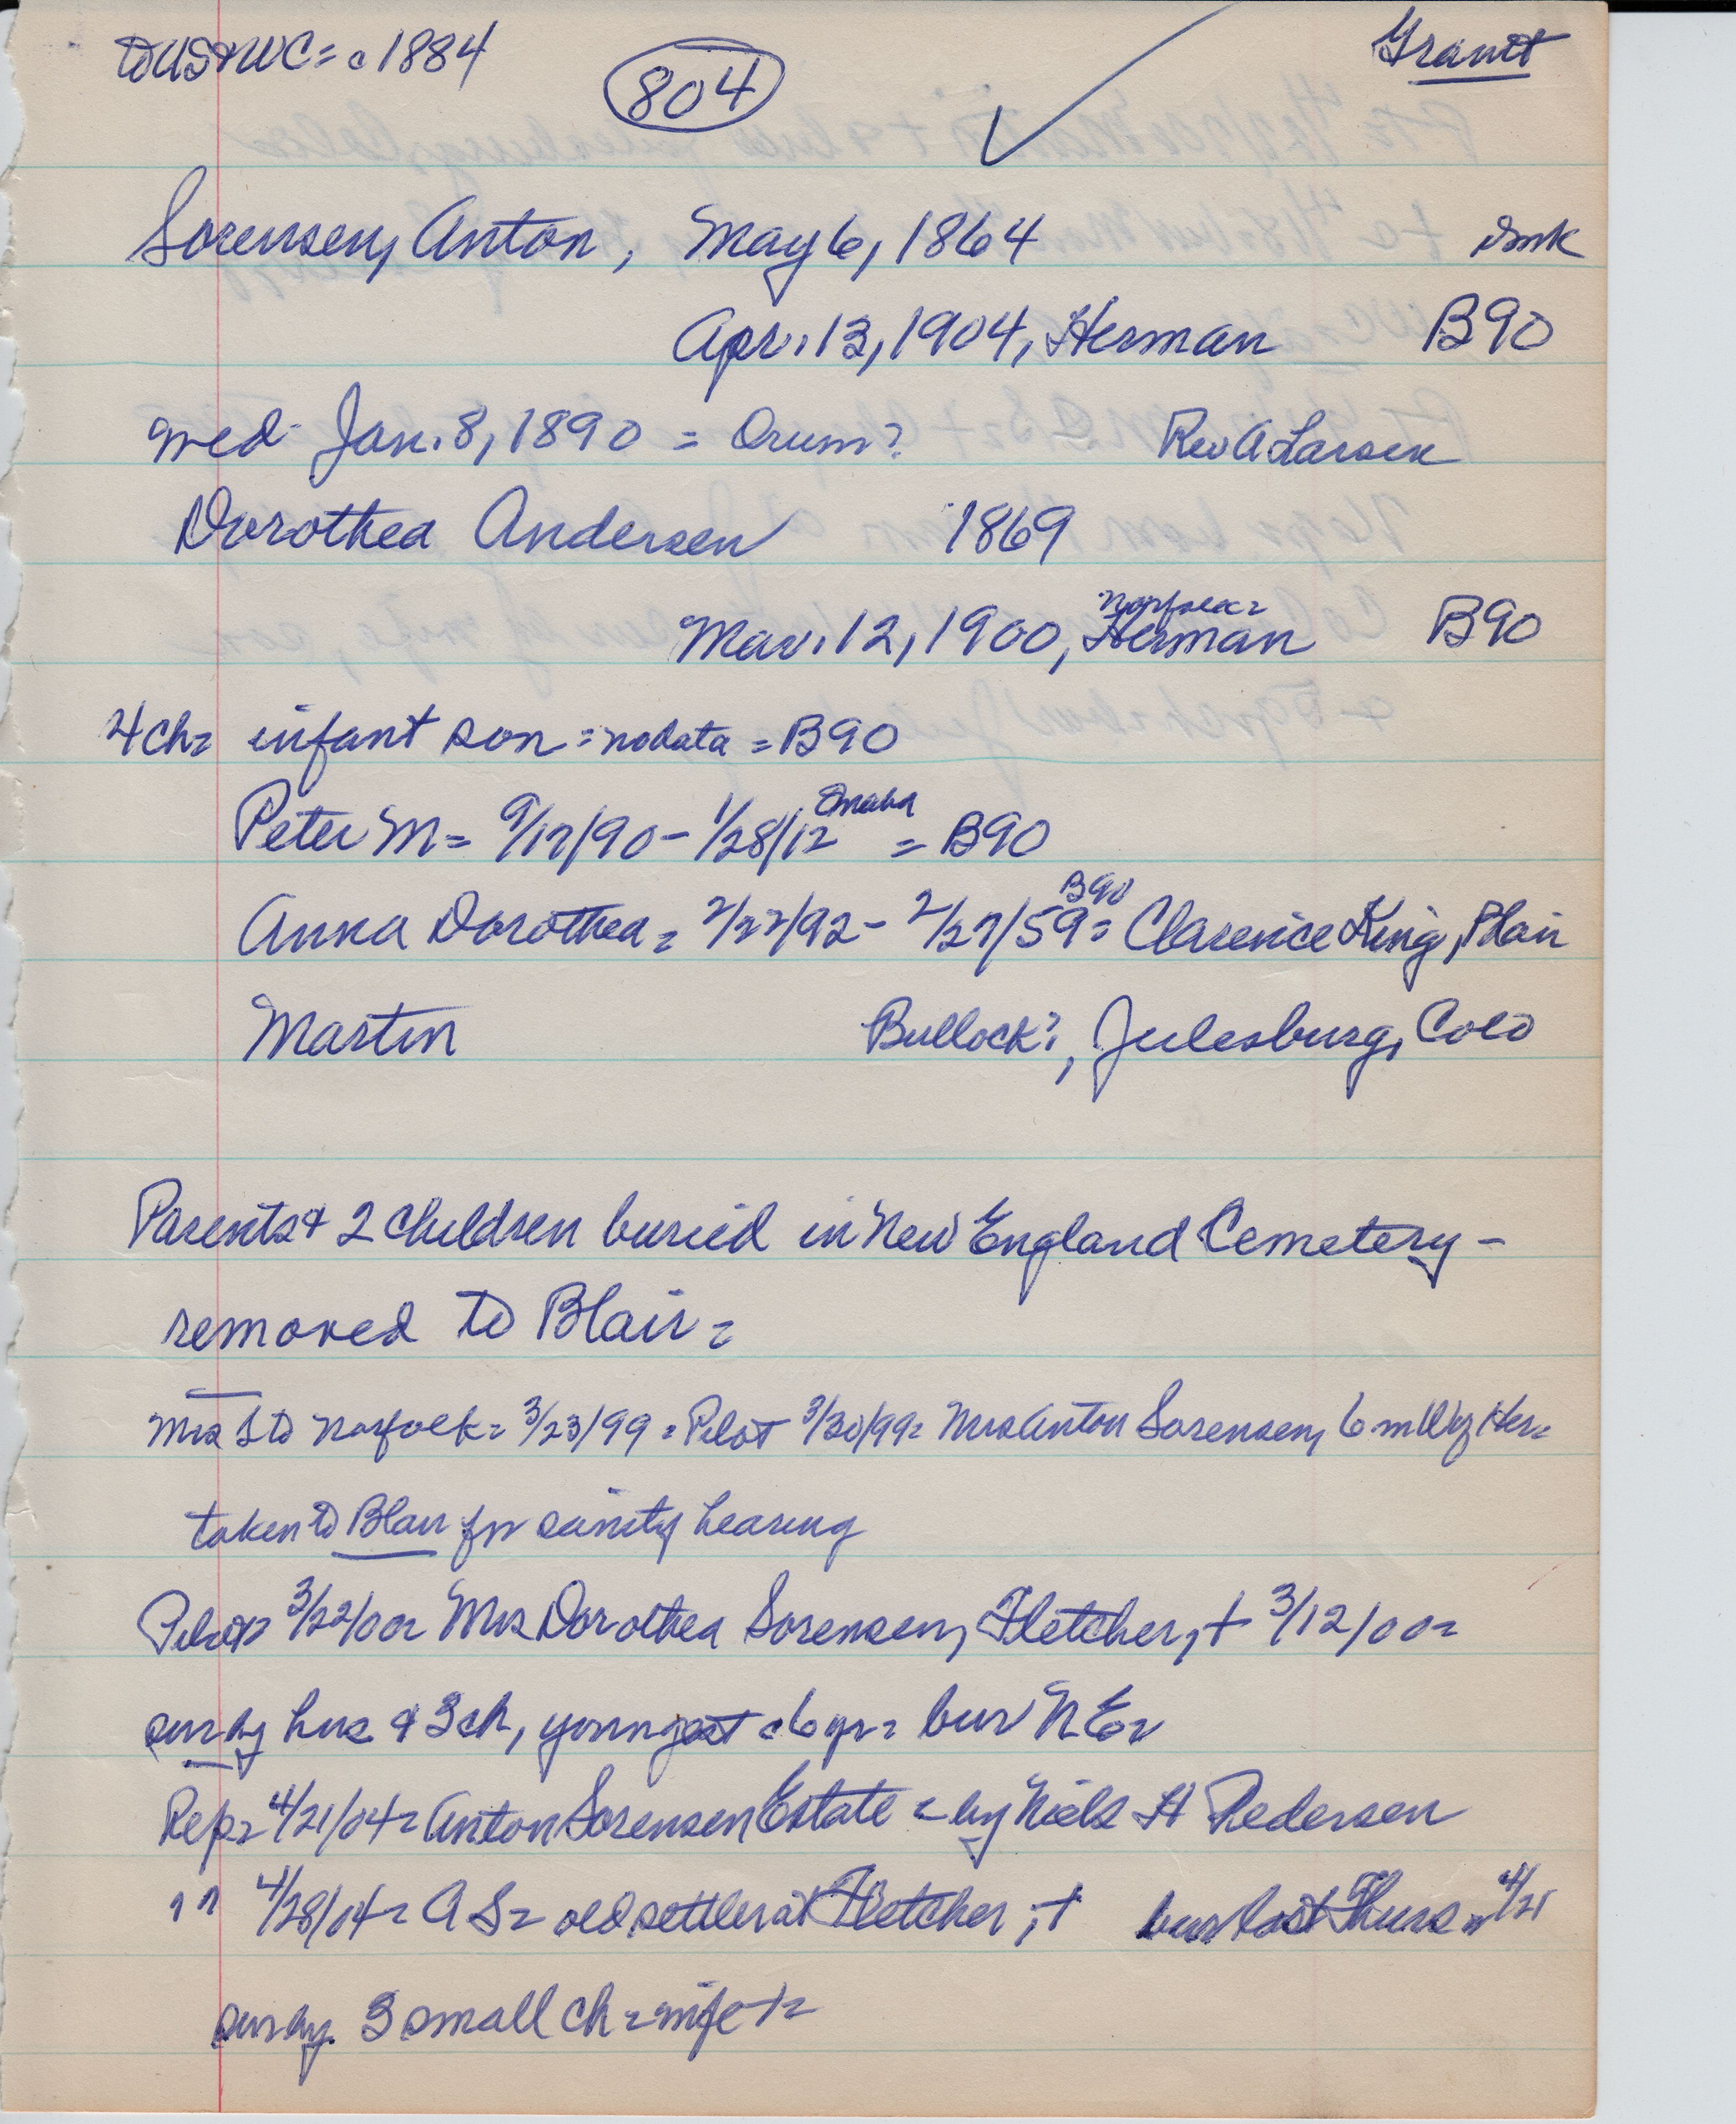 to US & WC = c 1884
804
Grant
Sorensen, Anton, May 6, 1864 Dmk
Apr. 13, 1904, Herman B90
med Jan. 8, 1890 = Orum? Rev A Larsen
Dorothea Andersen 1869
Norfolk=
Mar. 12, 1900, Herman B90
4 ch= infant son = no data = B90
Omaha
Peter M = 9/17/90 - 1/28/12 = B90
B90
Anna Dorothea = 2/22/92 - 2/27/59 = Clarence King, Blair
Martin Bullock?, Julesburg, Colo
Parents & 2 children buried in New England Cemetery -
removed to Blair =
Mrs S to Norfolk = 3/23/99 = Pilot 3/30/99 = Mrs Anton Sorensen, 6 m W of Her=
taken to Blair for sanity hearing
Pilot = 3/22/00 = Mrs Dorothea Sorensen, Fletcher, + 3/12/00 =
sur by hus & 3 ch, youngest c 6 yr = bur N E =
Rep = 4/21/04 = Anton Sorensen Estate = by Niels H Pedersen
" " 4/28/04 = A S = old settler at Fletcher, + bur last Thurs = 4/21
sur by 3 small ch = wife + =